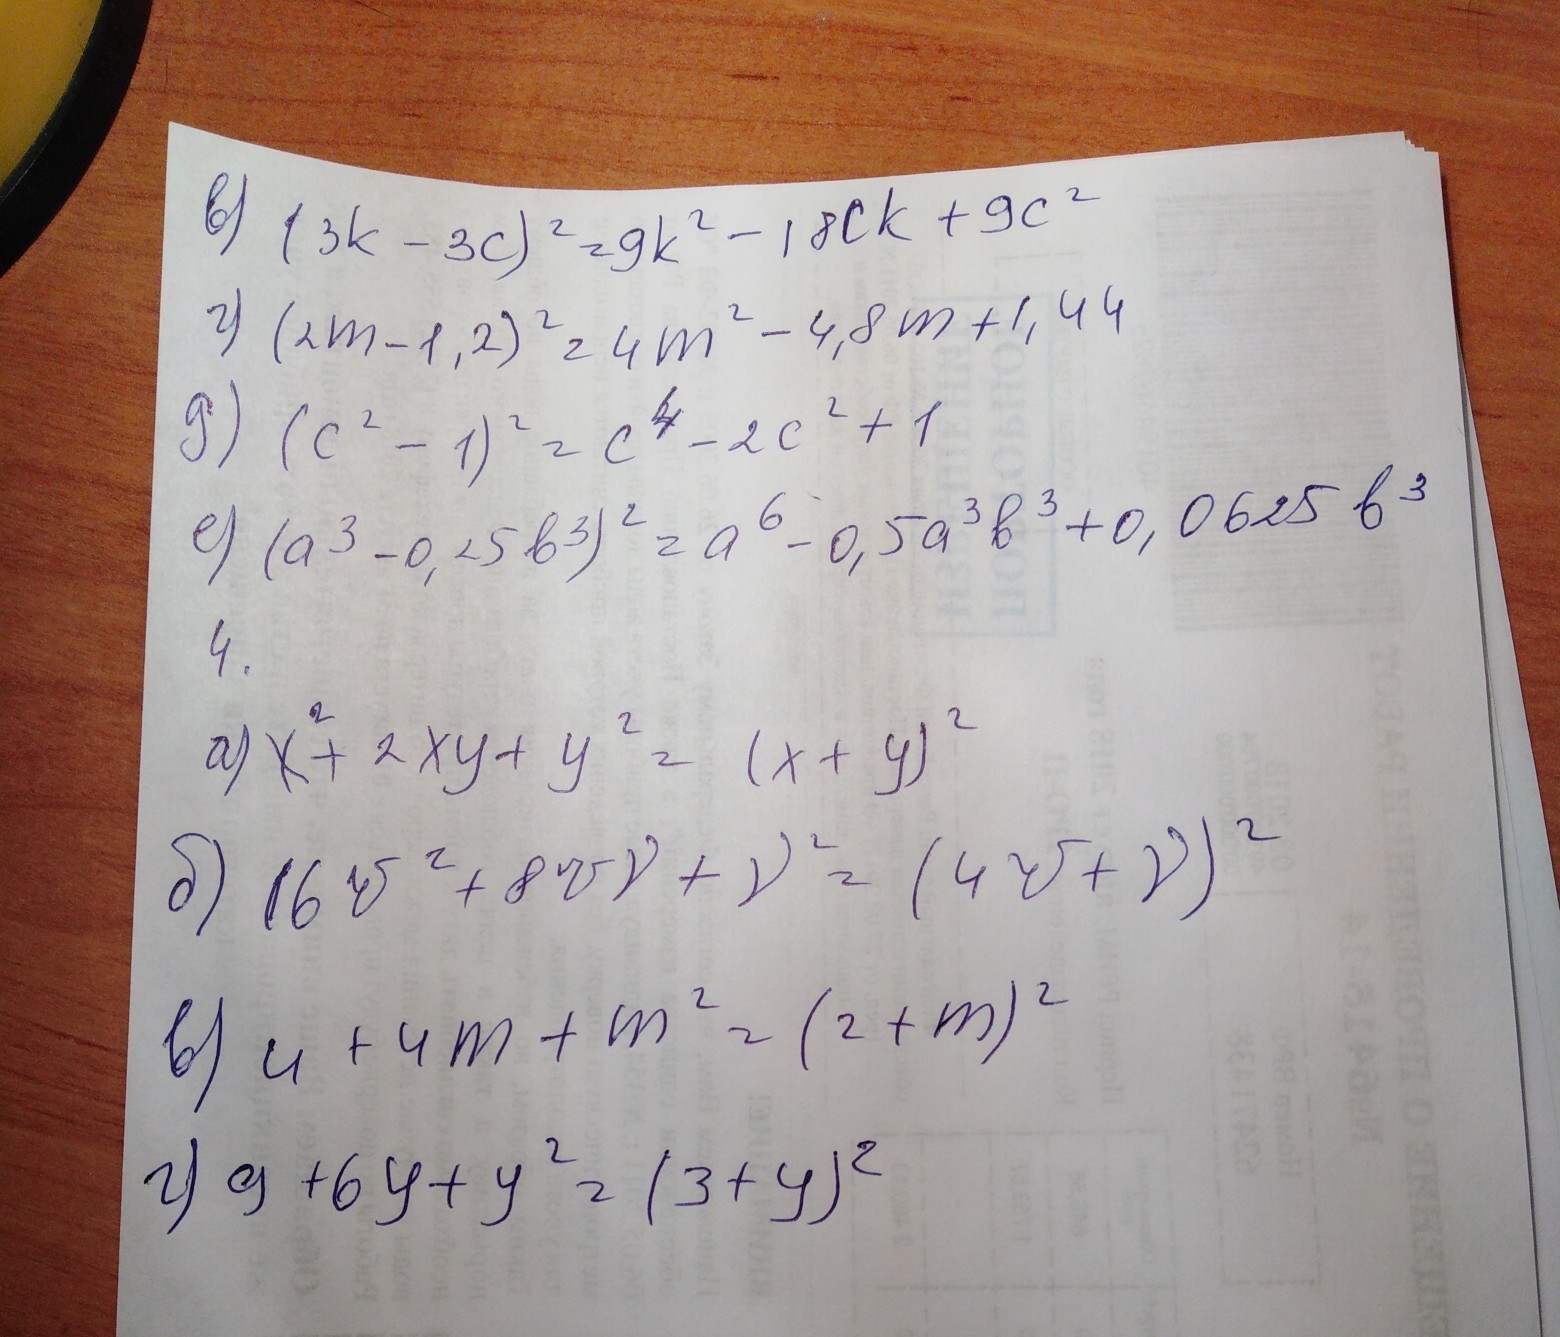 в) (3k - 3c)² = 9k² - 18ck + 9c²
г) (2m - 1,2)² = 4m² - 4,8m + 1,44
д) (c² - 1)² = c⁴ - 2c² + 1
е) (a³ - 0,25b³)² = a⁶ - 0,5a³b³ + 0,0625b³
4.
а) x² + 2xy + y² = (x + y)²
б) 16w² + 8wv + v² = (4w + v)²
в) 4 + 4m + m² = (2 + m)²
г) 9 + 6y + y² = (3 + y)²